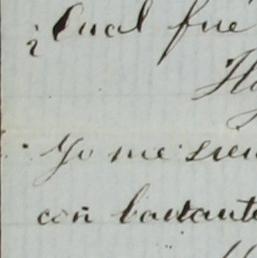 ¿Cual fué
Yo me sien
con bastant